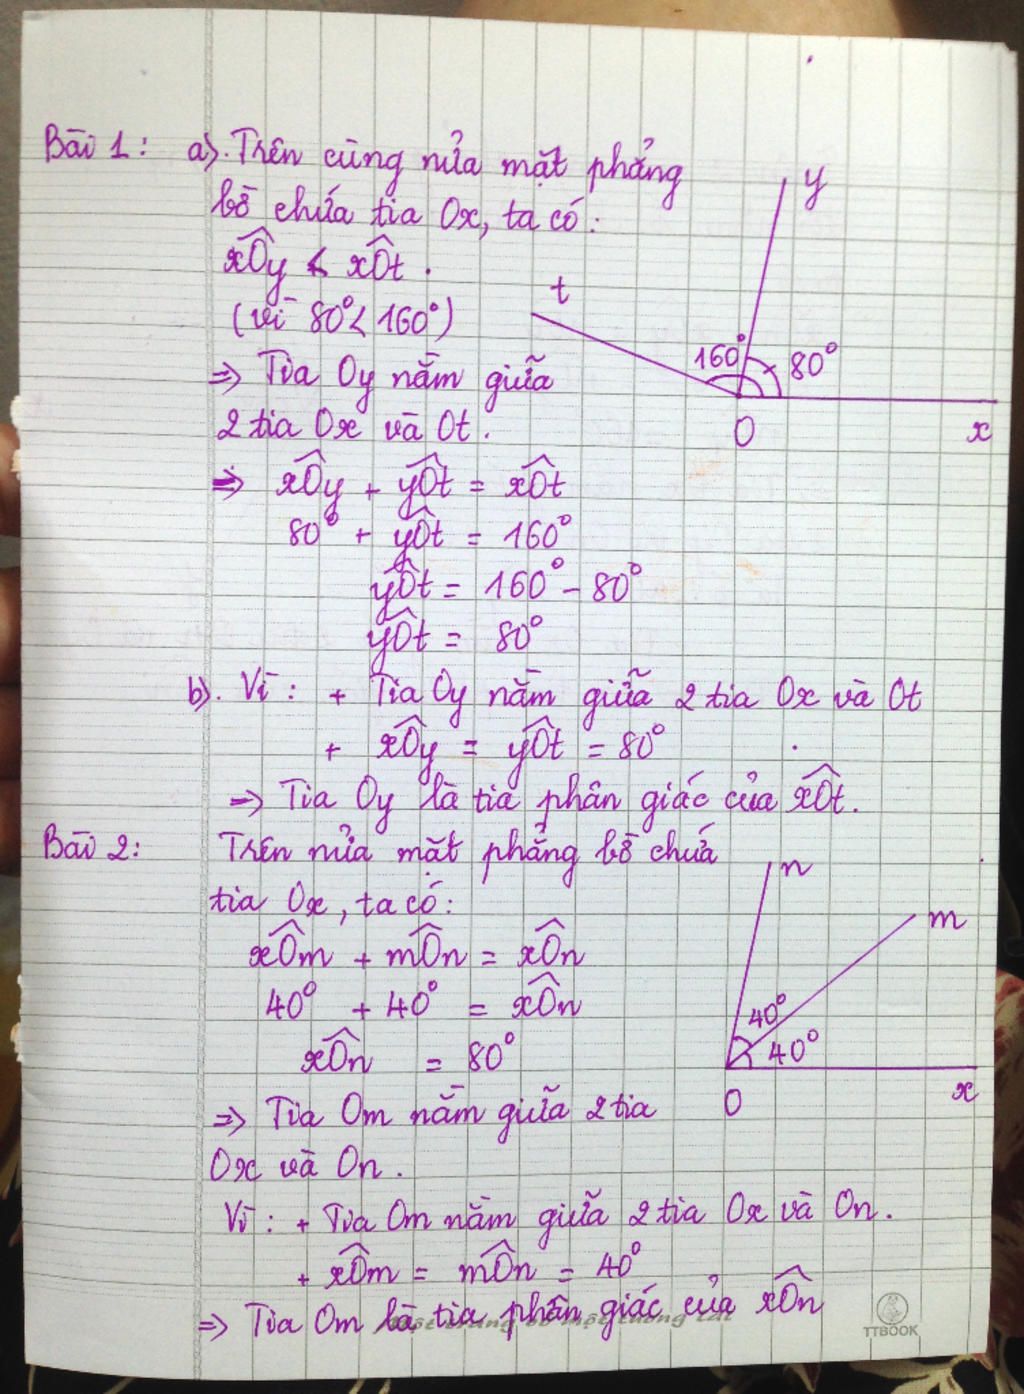 Bài 1: a). Trên cùng nửa mặt phẳng
bờ chứa tia Ox, ta có:
xÔy < xÔt.
(vì 80° < 160°)
=> Tia Oy nằm giữa
2 tia Ox và Ot.
=> xÔy + yÔt = xÔt
80° + yÔt = 160°
yÔt = 160° - 80°
yÔt = 80°
y
t
160°
80°
O
x
b). Vì: + Tia Oy nằm giữa 2 tia Ox và Ot
+ xÔy = yÔt = 80°
=> Tia Oy là tia phân giác của xÔt.
Bài 2: Trên nửa mặt phẳng bờ chứa
tia Ox, ta có:
xÔm + mÔn = xÔn
40° + 40° = xÔn
xÔn = 80°
=> Tia Om nằm giữa 2 tia
Ox và On.
n
m
40°
40°
O
x
Vì: + Tia Om nằm giữa 2 tia Ox và On.
+ xÔm = mÔn = 40°
=> Tia Om là tia phân giác của xÔn
TTBOOK